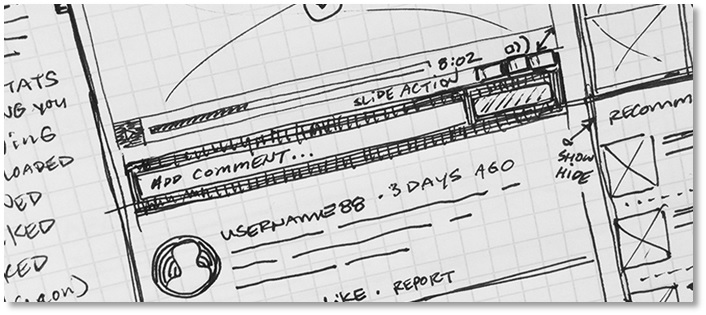 TATS
NG YOU
DING
LOADED
NED
KED
KED
8:02
SLIDE ACTION
ADD COMMENT...
USERNAME88 · 3 DAYS AGO
LIKE · REPORT
SHOW
HIDE
RECOMM